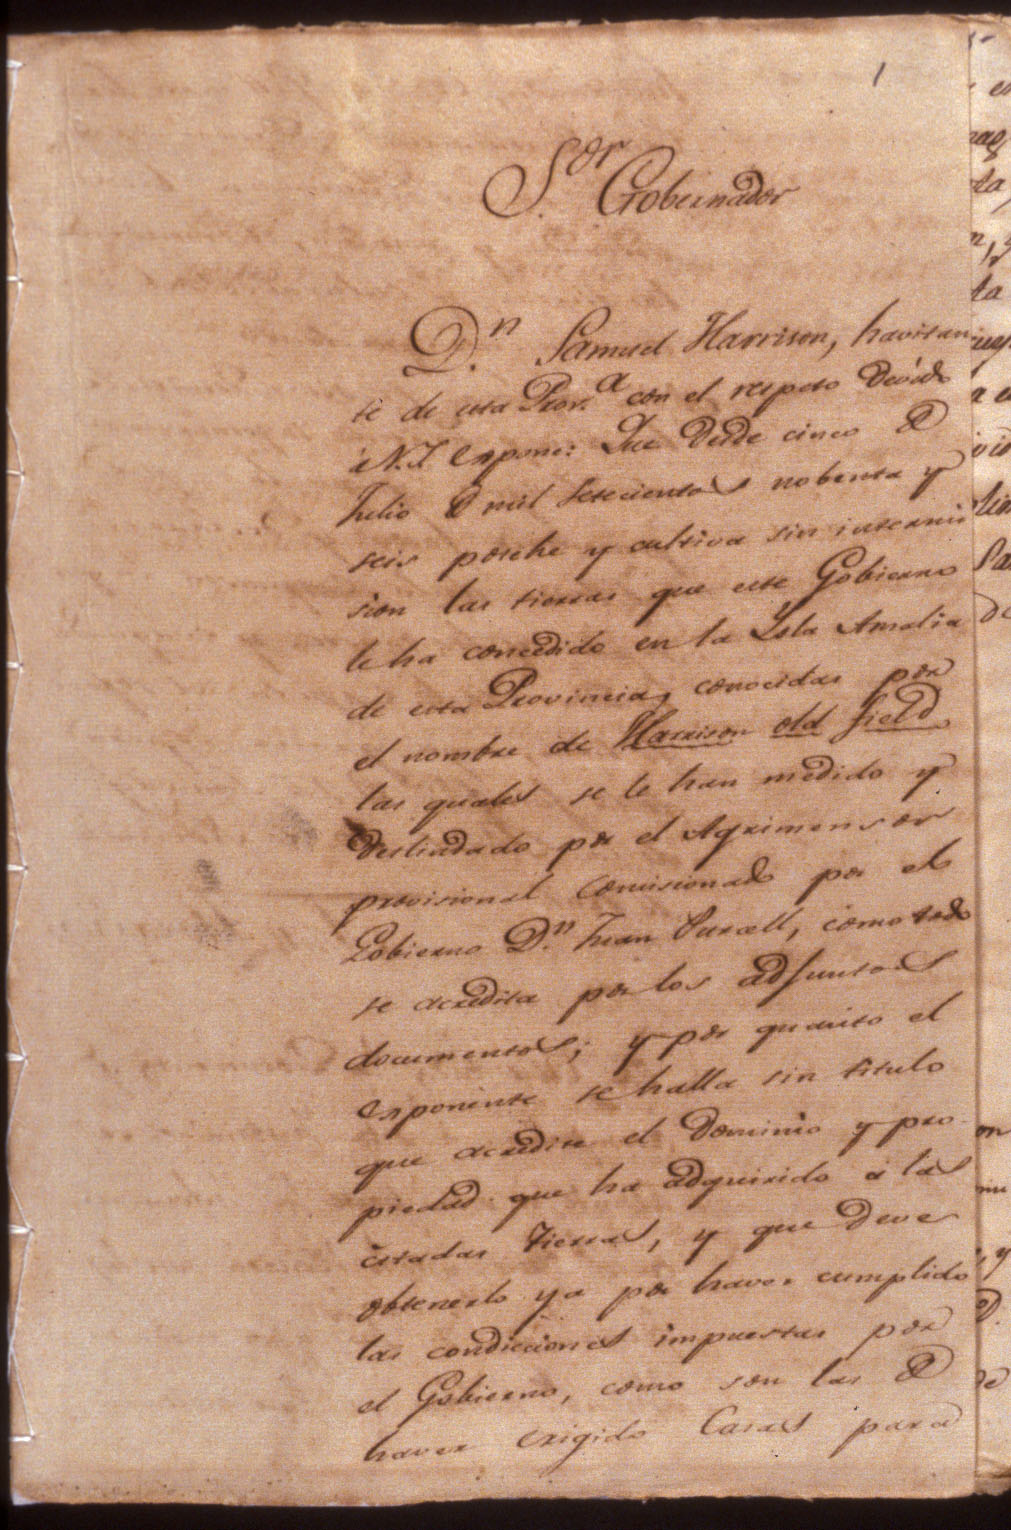 1
S.or Gobernador
D.n Samuel Harrison, havitan
te de esta Prov.a con el respeto devido
á V.S. expone: Que desde cinco de
Julio de mil setecientos nobenta y
seis posehe y cultiva sin intermi
sion las tierras que este Gobierno
le ha concedido en la Ysla Amalia
de esta Provincia, conocidas por
el nombre de Harrison old field
las quales se le han medido y
deslindado por el Agrimensor
provisional comisionado por el
Gobierno D.n Juan Purcell, como todo
se acredita por los adjuntos
documentos; y por quanto el
exponente se halla sin titulo
que acredite el dominio y pro
piedad que ha adquirido á las
citadas tierras, y que deve
obtenerlo ya por haver cumplido
las condiciones impuestas por
el Gobierno, como son las de
haver erigido Casas para